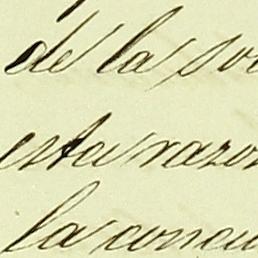 de la so
esta razon
la concu